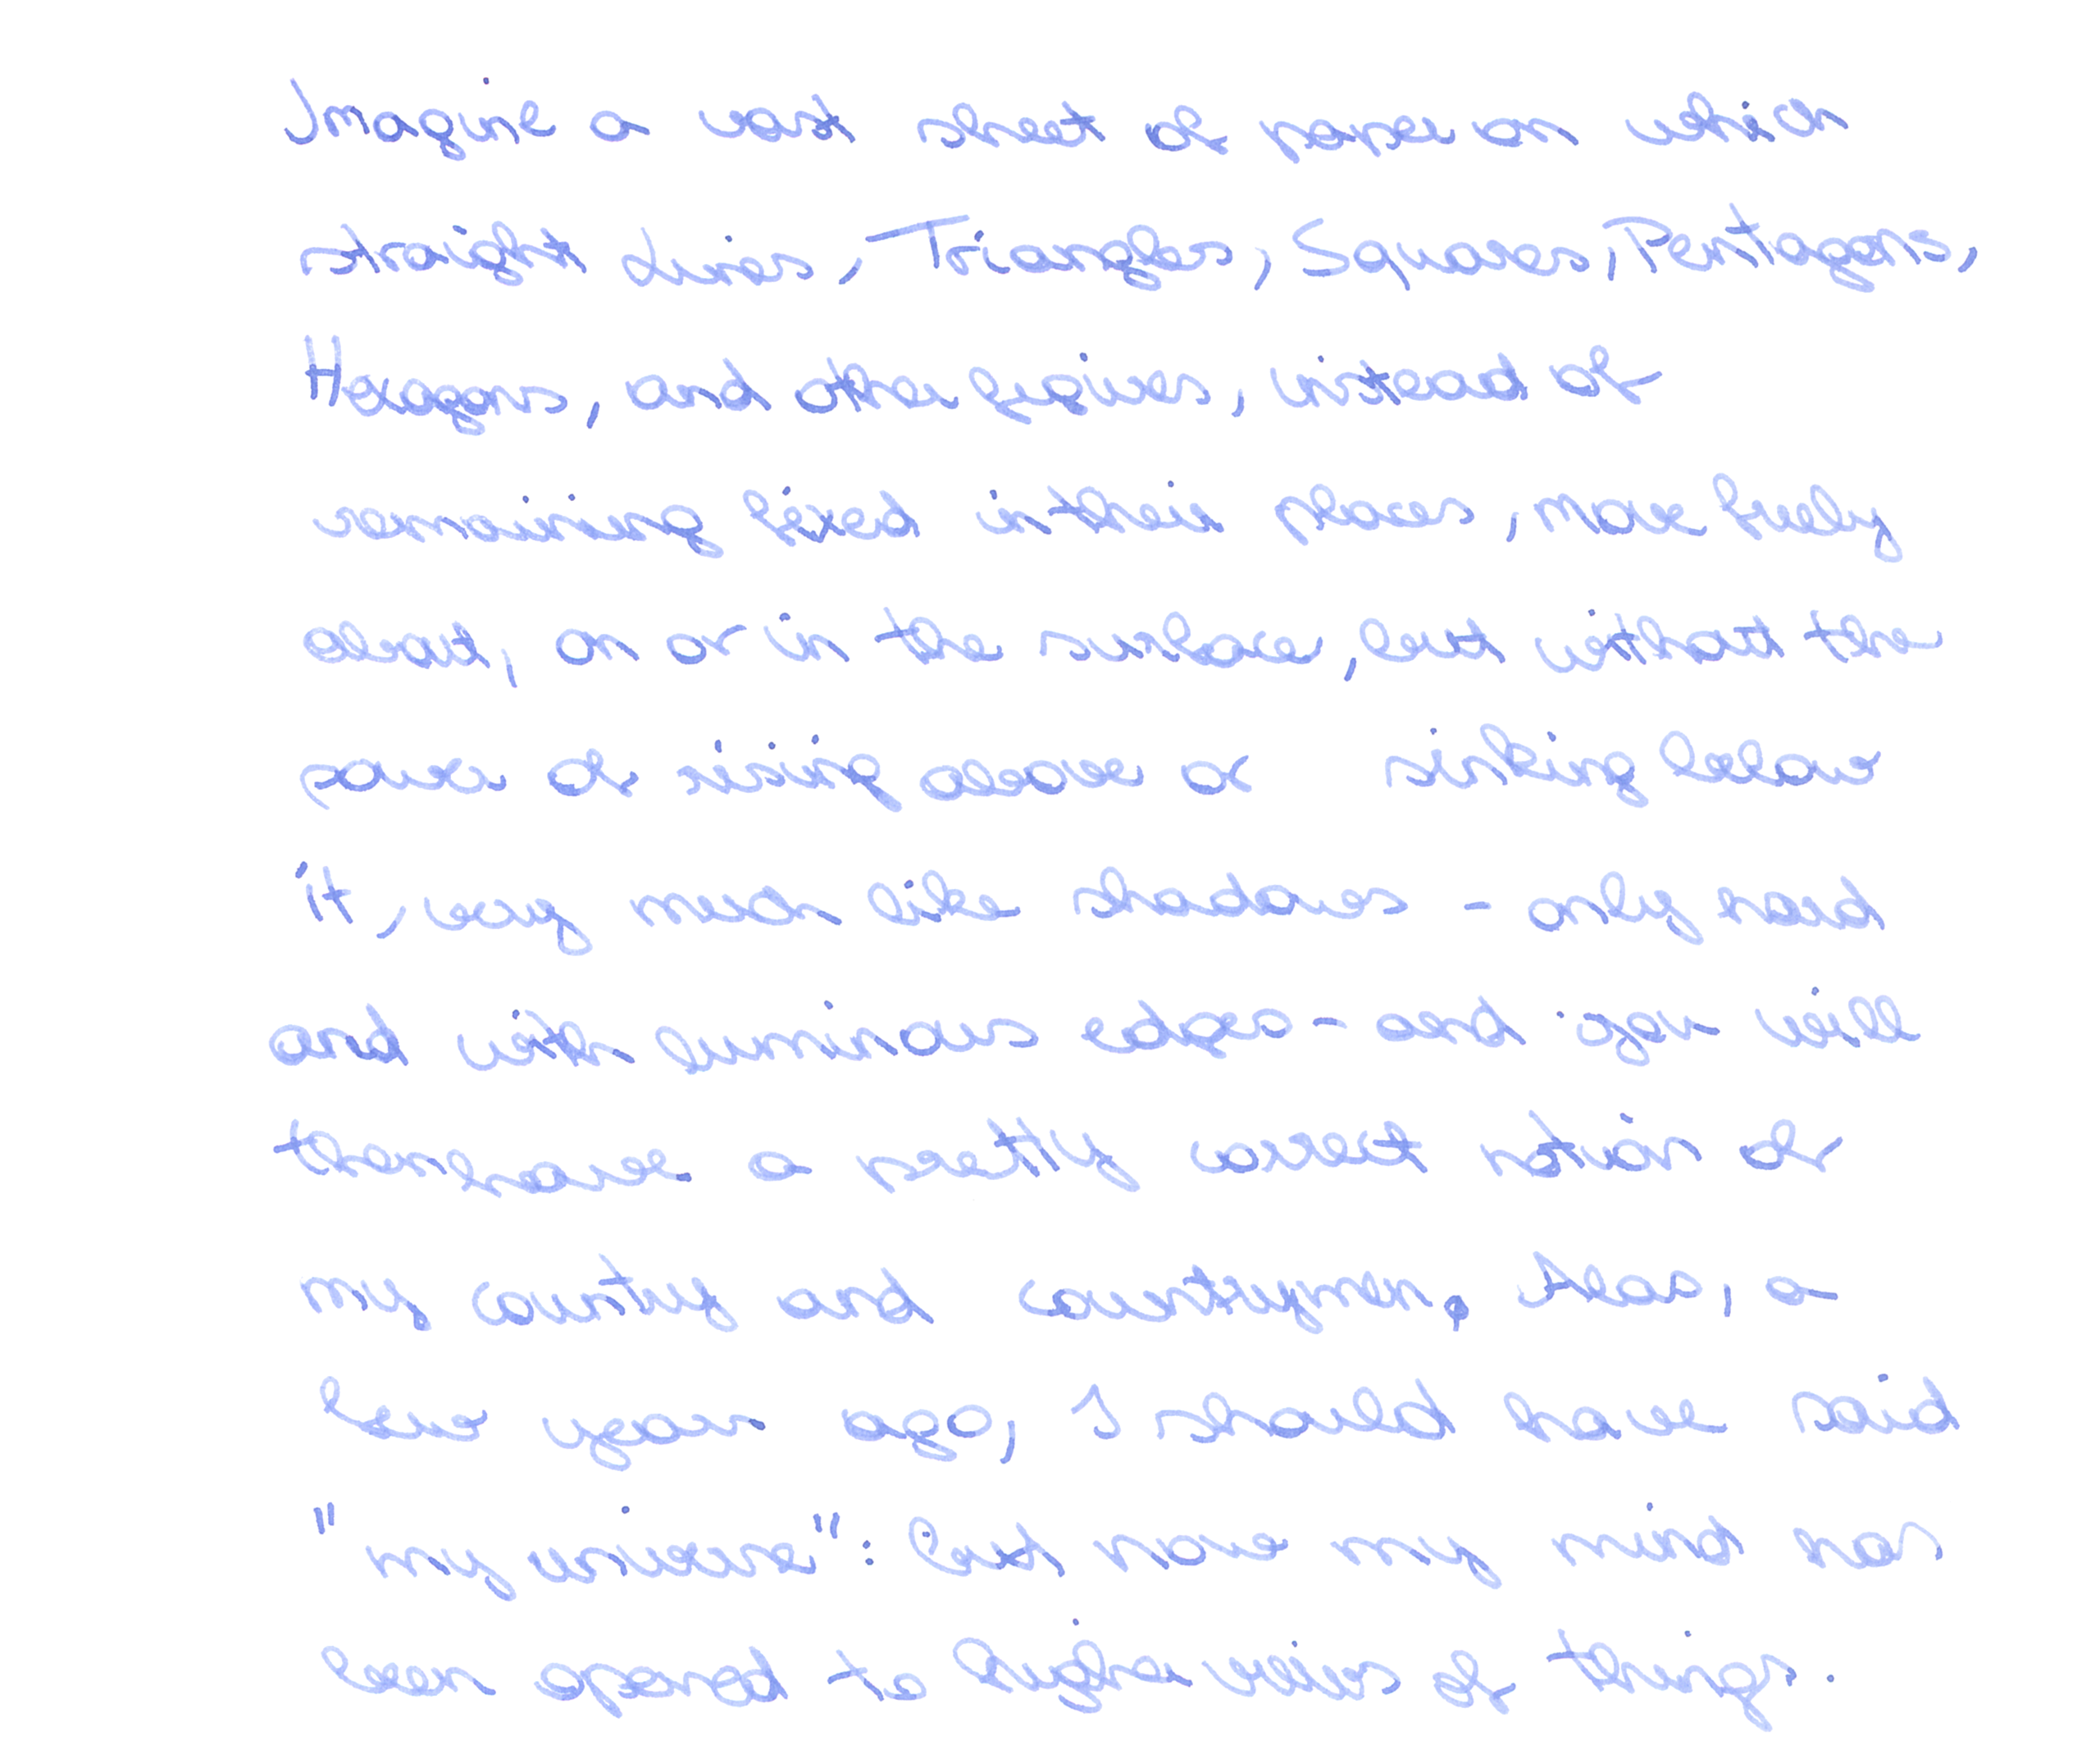 Imagine a vast sheet of paper on which
straight Lines, Triangles, Squares, Pentagons,
Hexagons, and other figures, instead of
remaining fixed in their places, move freely
about, on or in the surface, but without the
power of rising above or sinking below
it, very much like shadows - only hard
and with luminous edges - and you will
then have a pretty correct notion of
my country and countrymen. Alas, a
few years ago, I should have said
"my universe": but now my mind has
been opened to higher views of things.